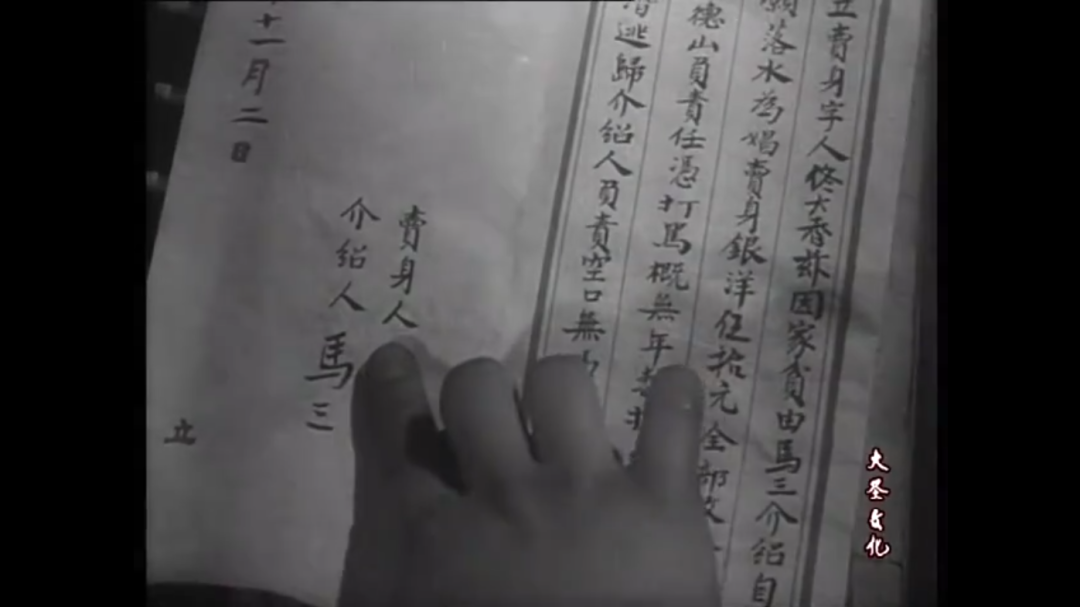 立賣身字人佟大香茲因家貧由馬三介紹自
願落水為娼賣身銀洋伍拾元全部
德山負責任憑打罵概無年
逃歸介紹人負責空口無
賣身人
介紹人 馬三
十一月二日
立
大圣文化